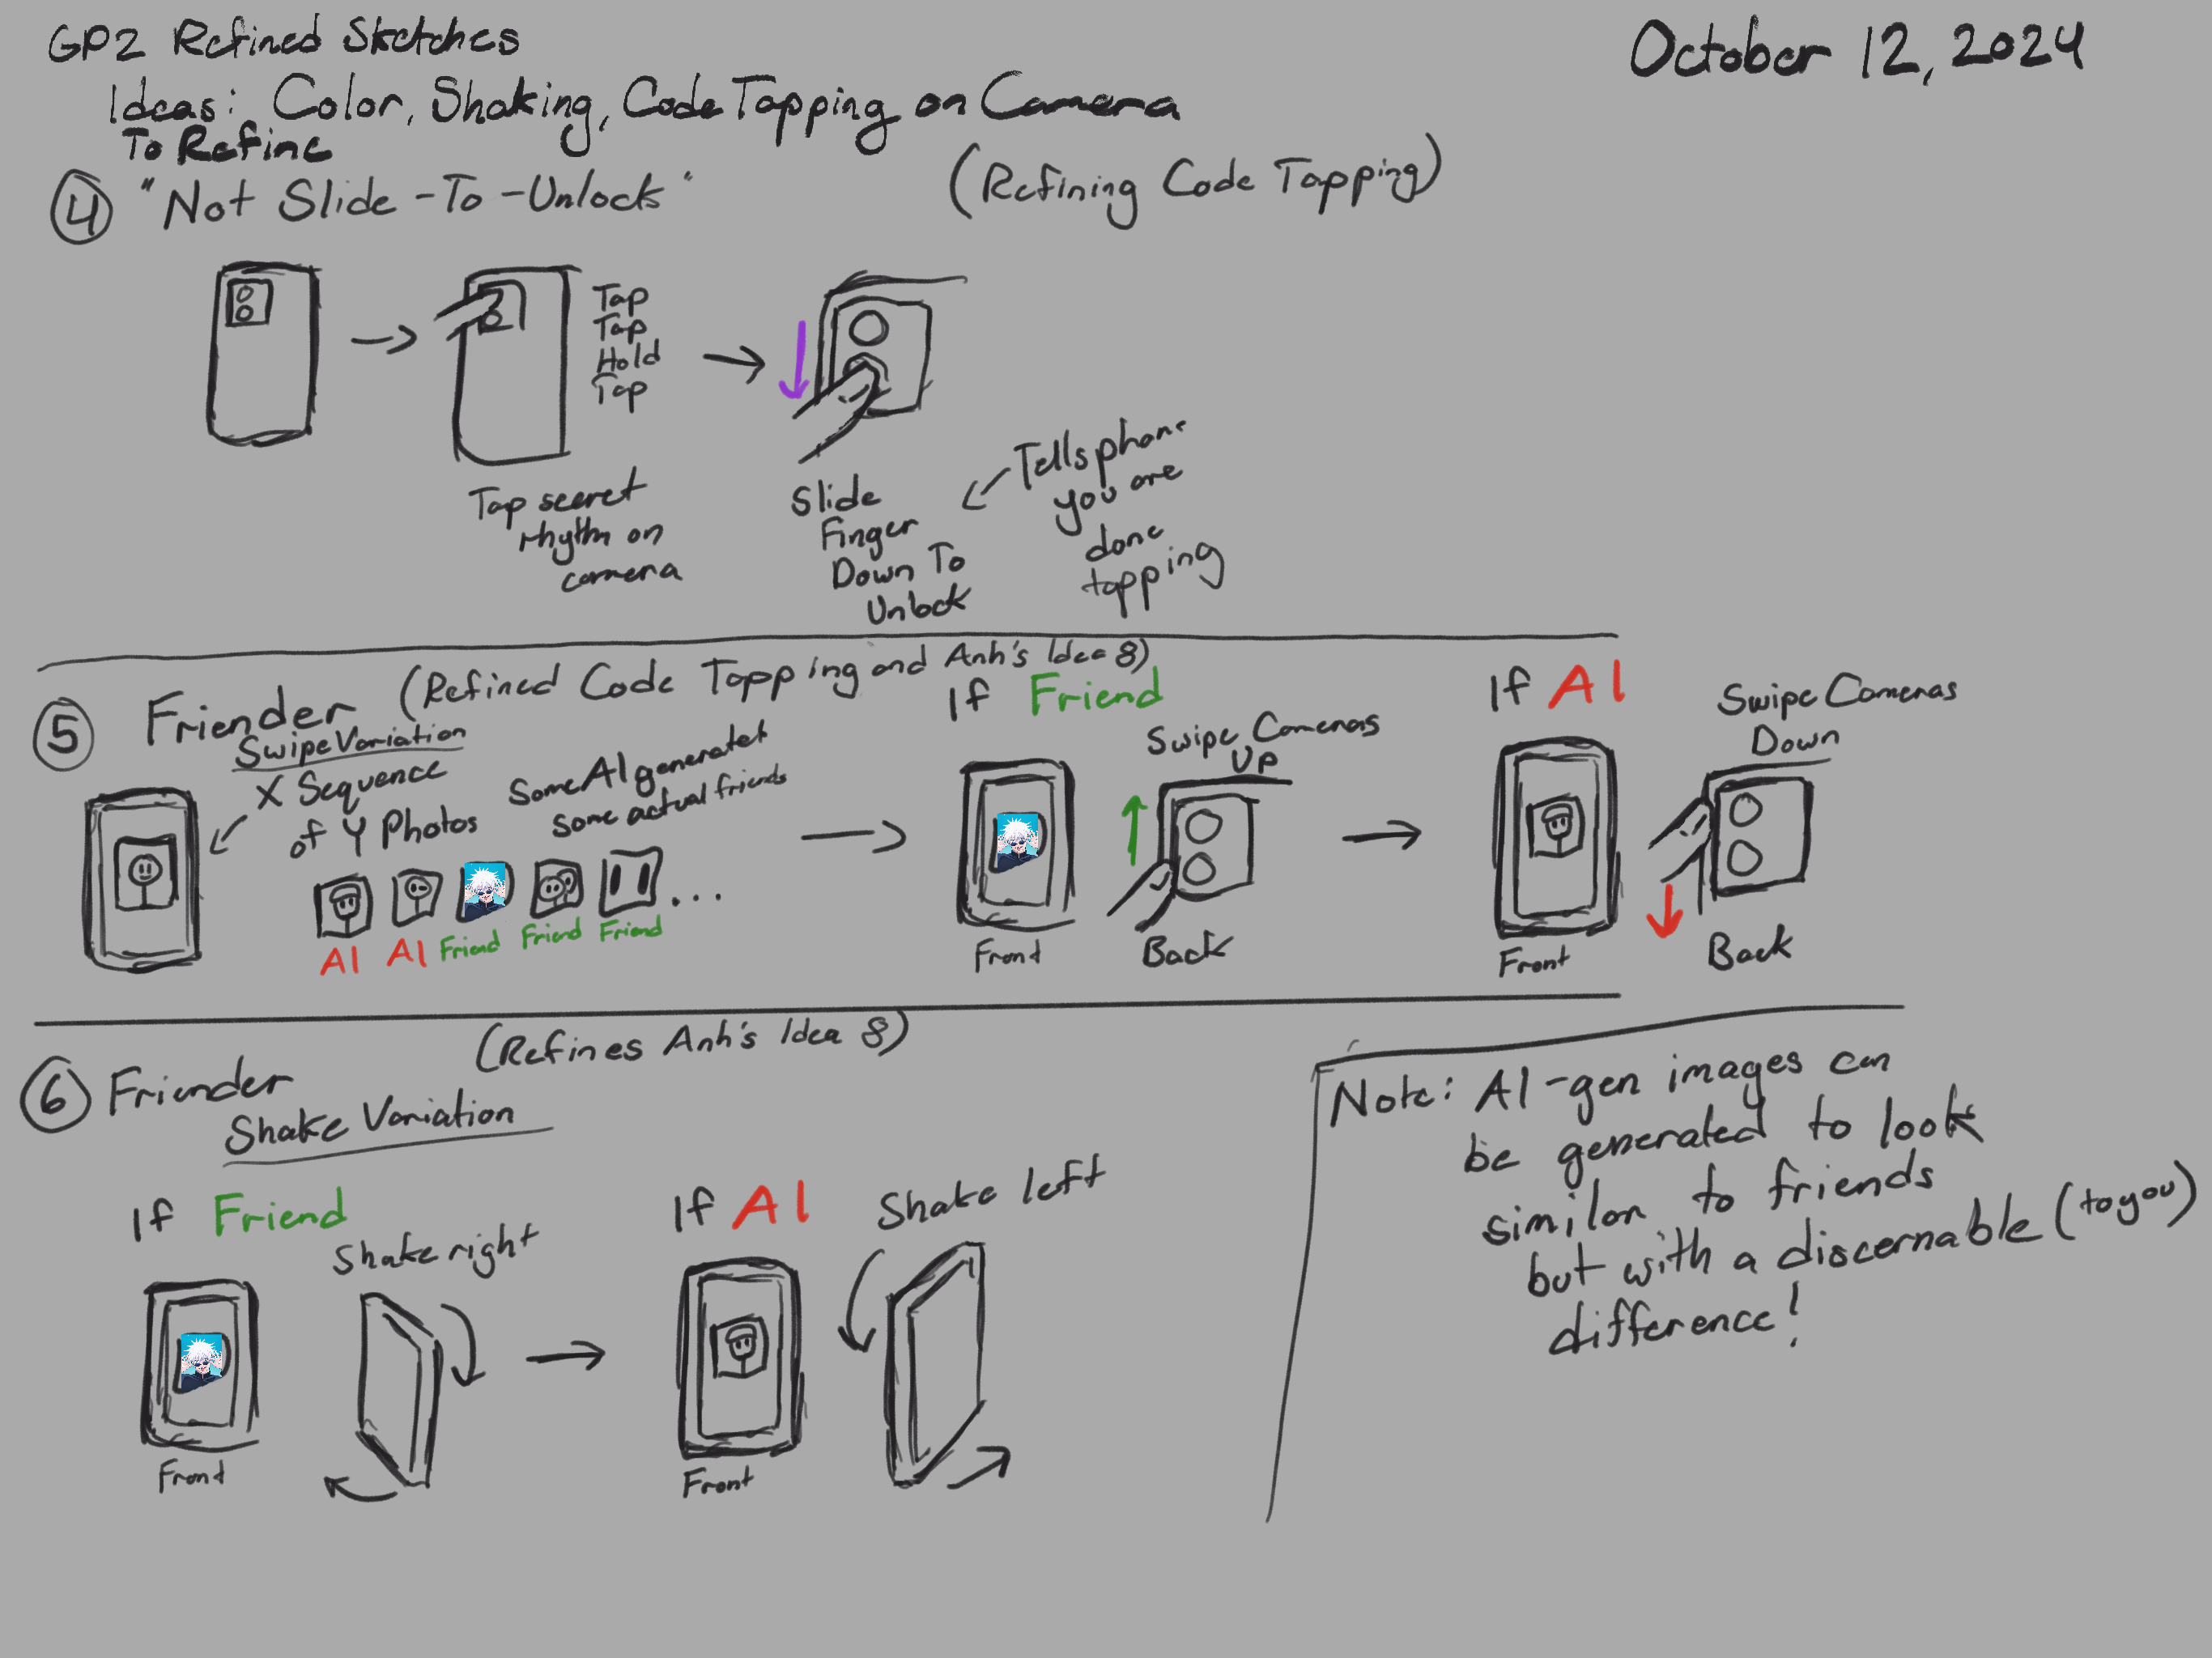 GP2 Refined Sketches
October 12, 2024
Ideas: Color, Shaking, Code Tapping on Camera
To Refine
④ "Not Slide-To-Unlock"
(Refining Code Tapping)
Tap
Tap
Hold
Tap
Tap secret
rhythm on
camera
Slide
Finger
Down To
Unlock
Tells phone
you are
done
tapping
⑤ Friender
(Refined Code Tapping and Anh's Idea 8)
Swipe Variation
X Sequence
of Y Photos
Some AI generated
some actual friends
AI
AI
Friend
Friend
Friend
...
If Friend
Swipe Cameras
Up
Front
Back
If AI
Swipe Cameras
Down
Front
Back
⑥ Friender
(Refines Anh's Idea 8)
Shake Variation
If Friend
Shake right
Front
If AI
Shake left
Front
Note: AI-gen images can
be generated to look
similar to friends
but with a discernable (to you)
difference!